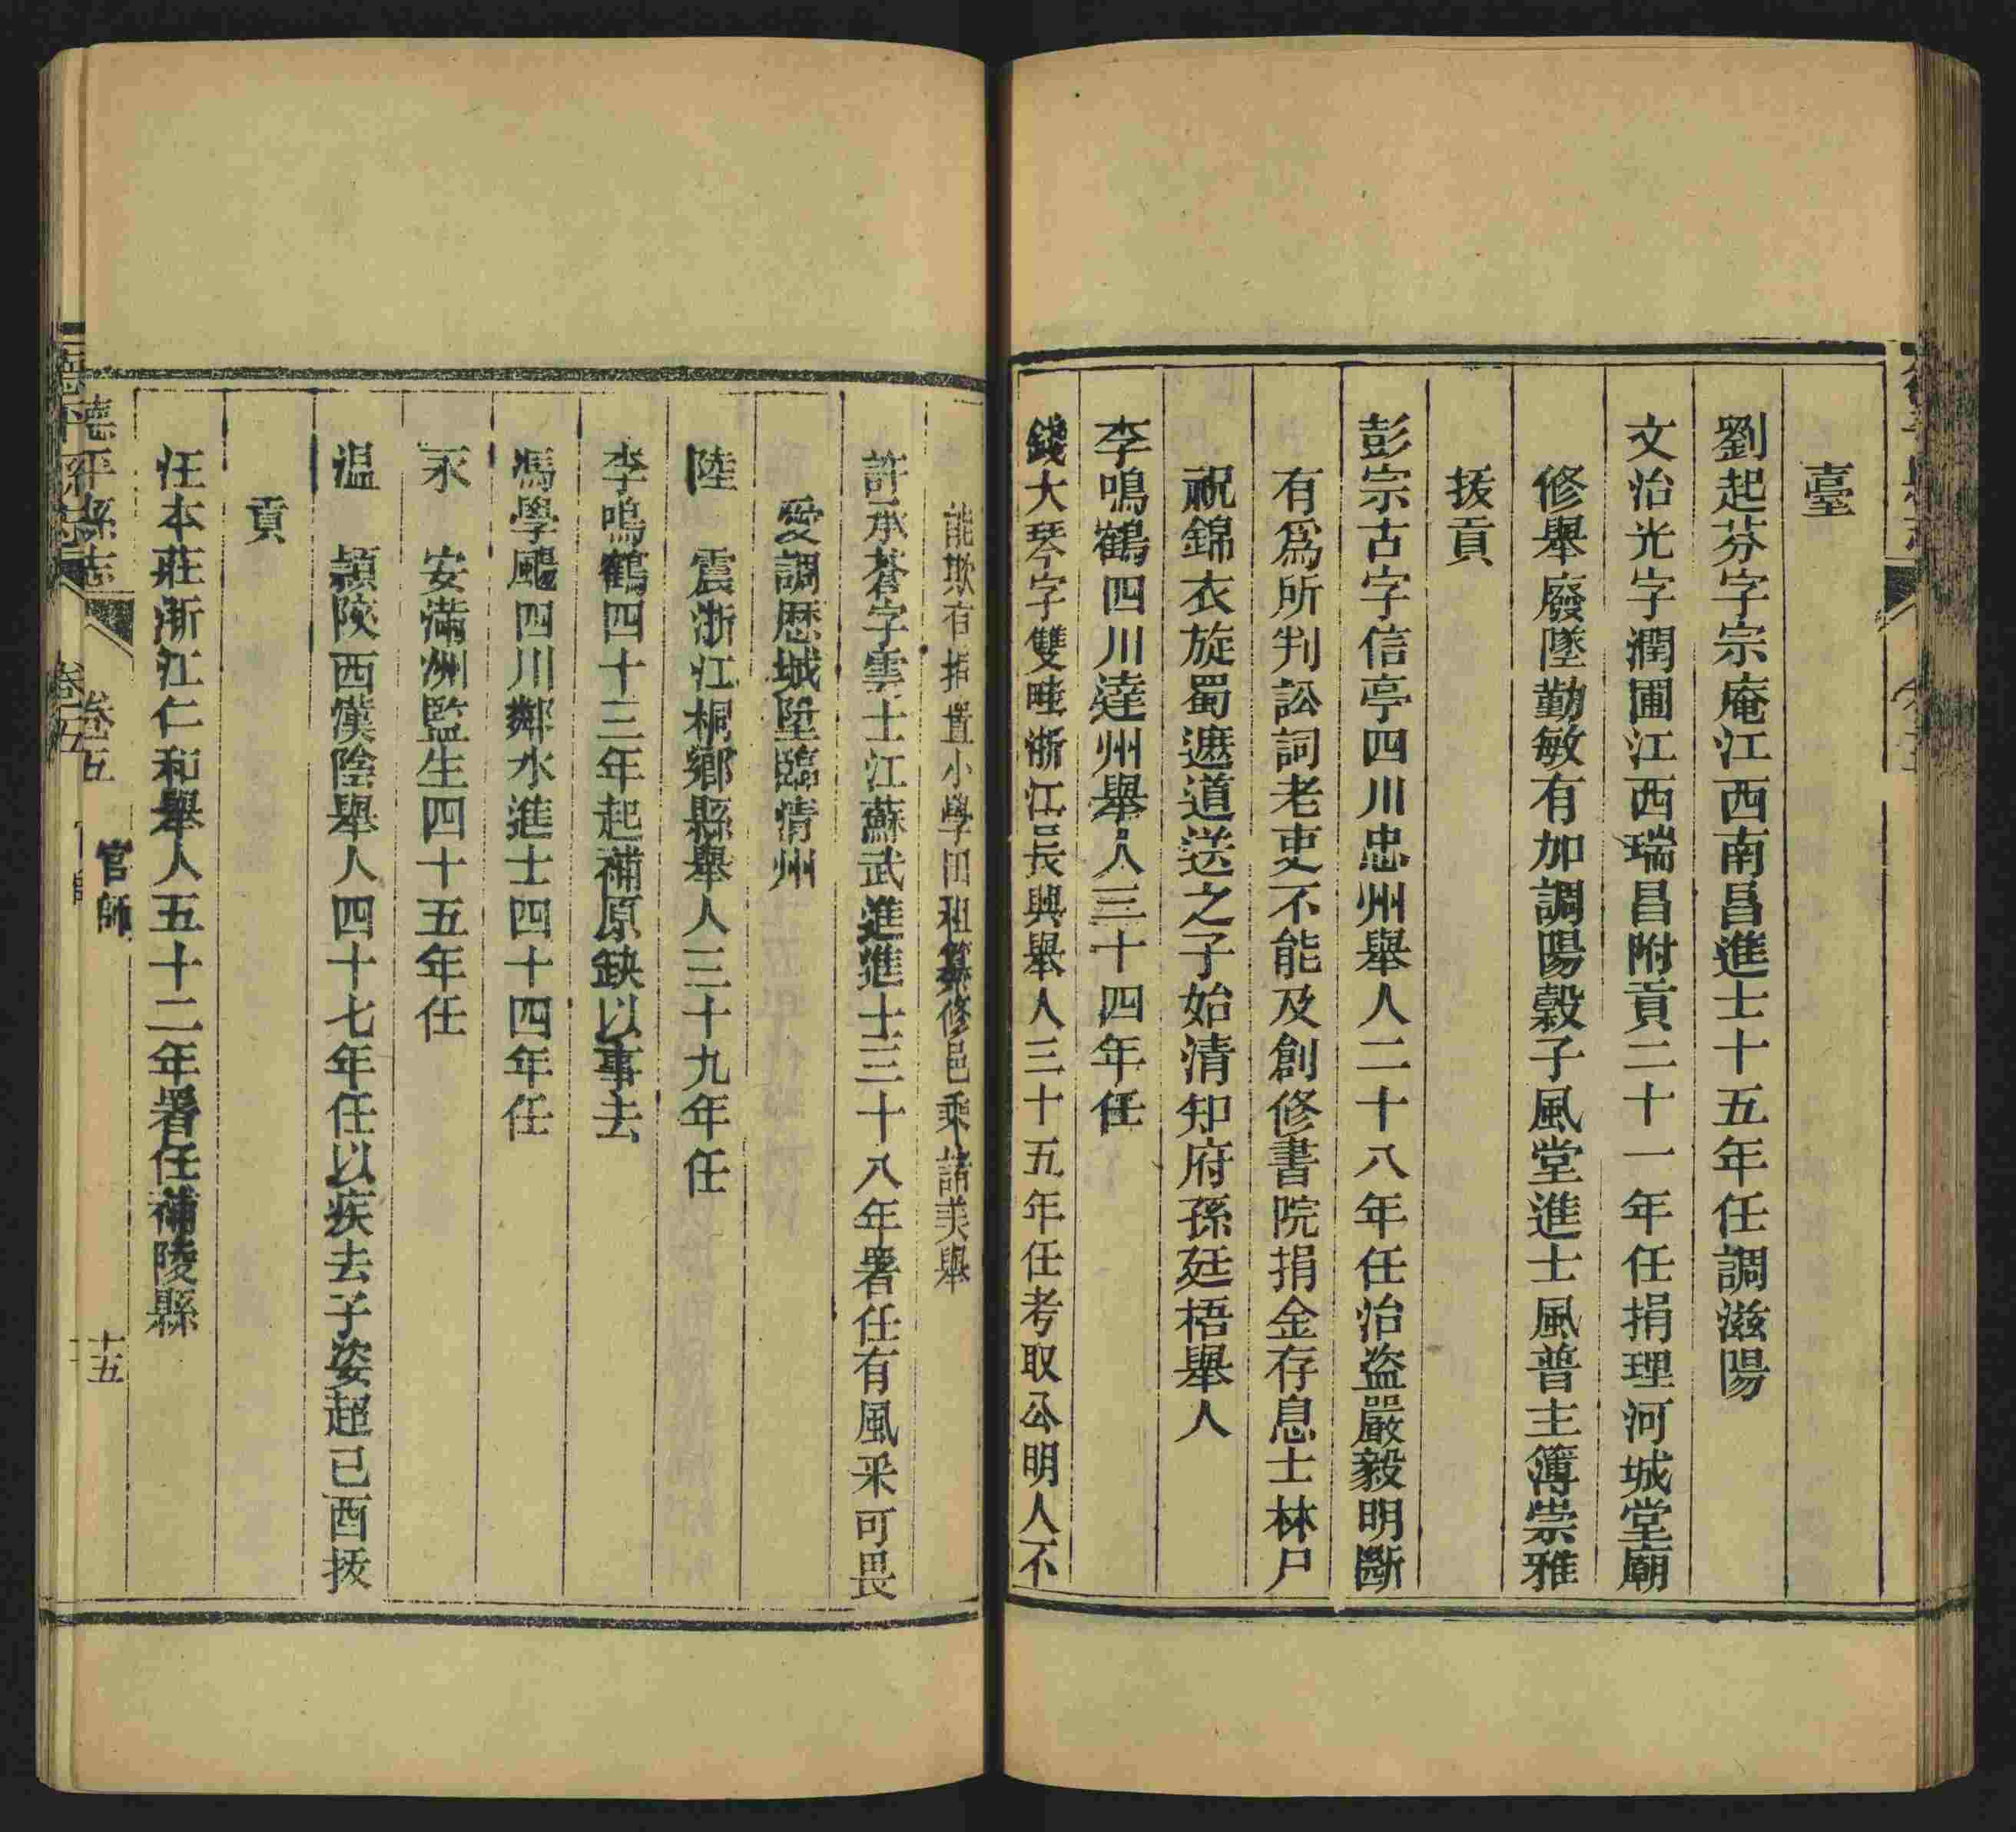 臺
劉起芬字宗庵江西南昌進士十五年任調滋陽
文治光字潤圃江西瑞昌附貢二十一年任捐理河城堂廟
修舉廢墜勤敏有加調陽穀子風堂進士風普主簿崇雅
拔貢
彭宗古字信亭四川忠州舉人二十八年任治盜嚴毅明斷
有爲所判訟詞老吏不能及創修書院捐金存息士林尸
祝錦衣旋蜀遮道送之子始清知府孫廷梧舉人
李鳴鶴四川達州舉人三十四年任
錢大琴字雙畦浙江長興舉人三十五年任考取公明人不
能欺有指置小學田租纂修邑乘諸美舉
許承蒼字雲士江蘇武進進士三十八年署任有風采可畏
愛調歷城陞臨清州
陸　震浙江桐鄉縣舉人三十九年任
李鳴鶴四十三年起補原缺以事去
馮學颺四川鄰水進士四十四年任
永　安滿洲監生四十五年任
温　頴陜西漢陰舉人四十七年任以疾去子姿超己酉拔
貢
汪本莊浙江仁和舉人五十二年署任補陵縣
德平縣志　卷五　官師　十五